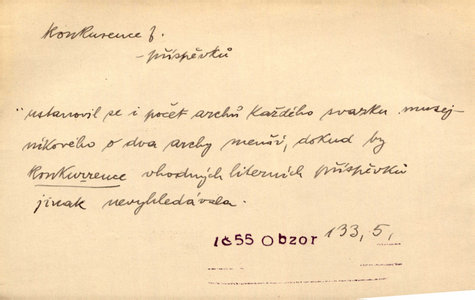 Konkurence f.
– příspěvků
„ustanovil se i počet archů každého svazku musej-
níkového o dva archy menší, dokud by
Konkurrence vhodných literních příspěvků
jinak nevyhledávala.
1855 Obzor 133, 5,